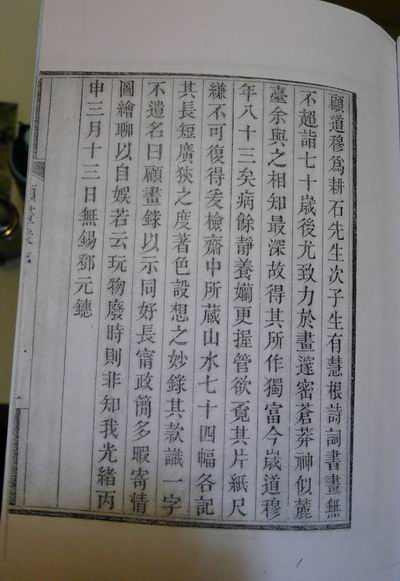 顧道穆爲耕石先生次子生有慧根詩詞書畫無
不超詣七十歲後尤致力於畫邃密蒼莽神似麓
臺余與之相知最深故得其所作獨富今歲道穆
年八十三矣病餘靜養嬾更握管欲覓其片紙尺
縑不可復得爰檢齋中所蔵山水七十四幅各記
其長短廣狹之度著色設想之妙錄其款識一字
不遺名曰顧畫錄以示同好長甯政簡多暇寄情
圖繪聊以自娛若云玩物廢時則非知我光緒丙
申三月十三日無錫鄧元鏸